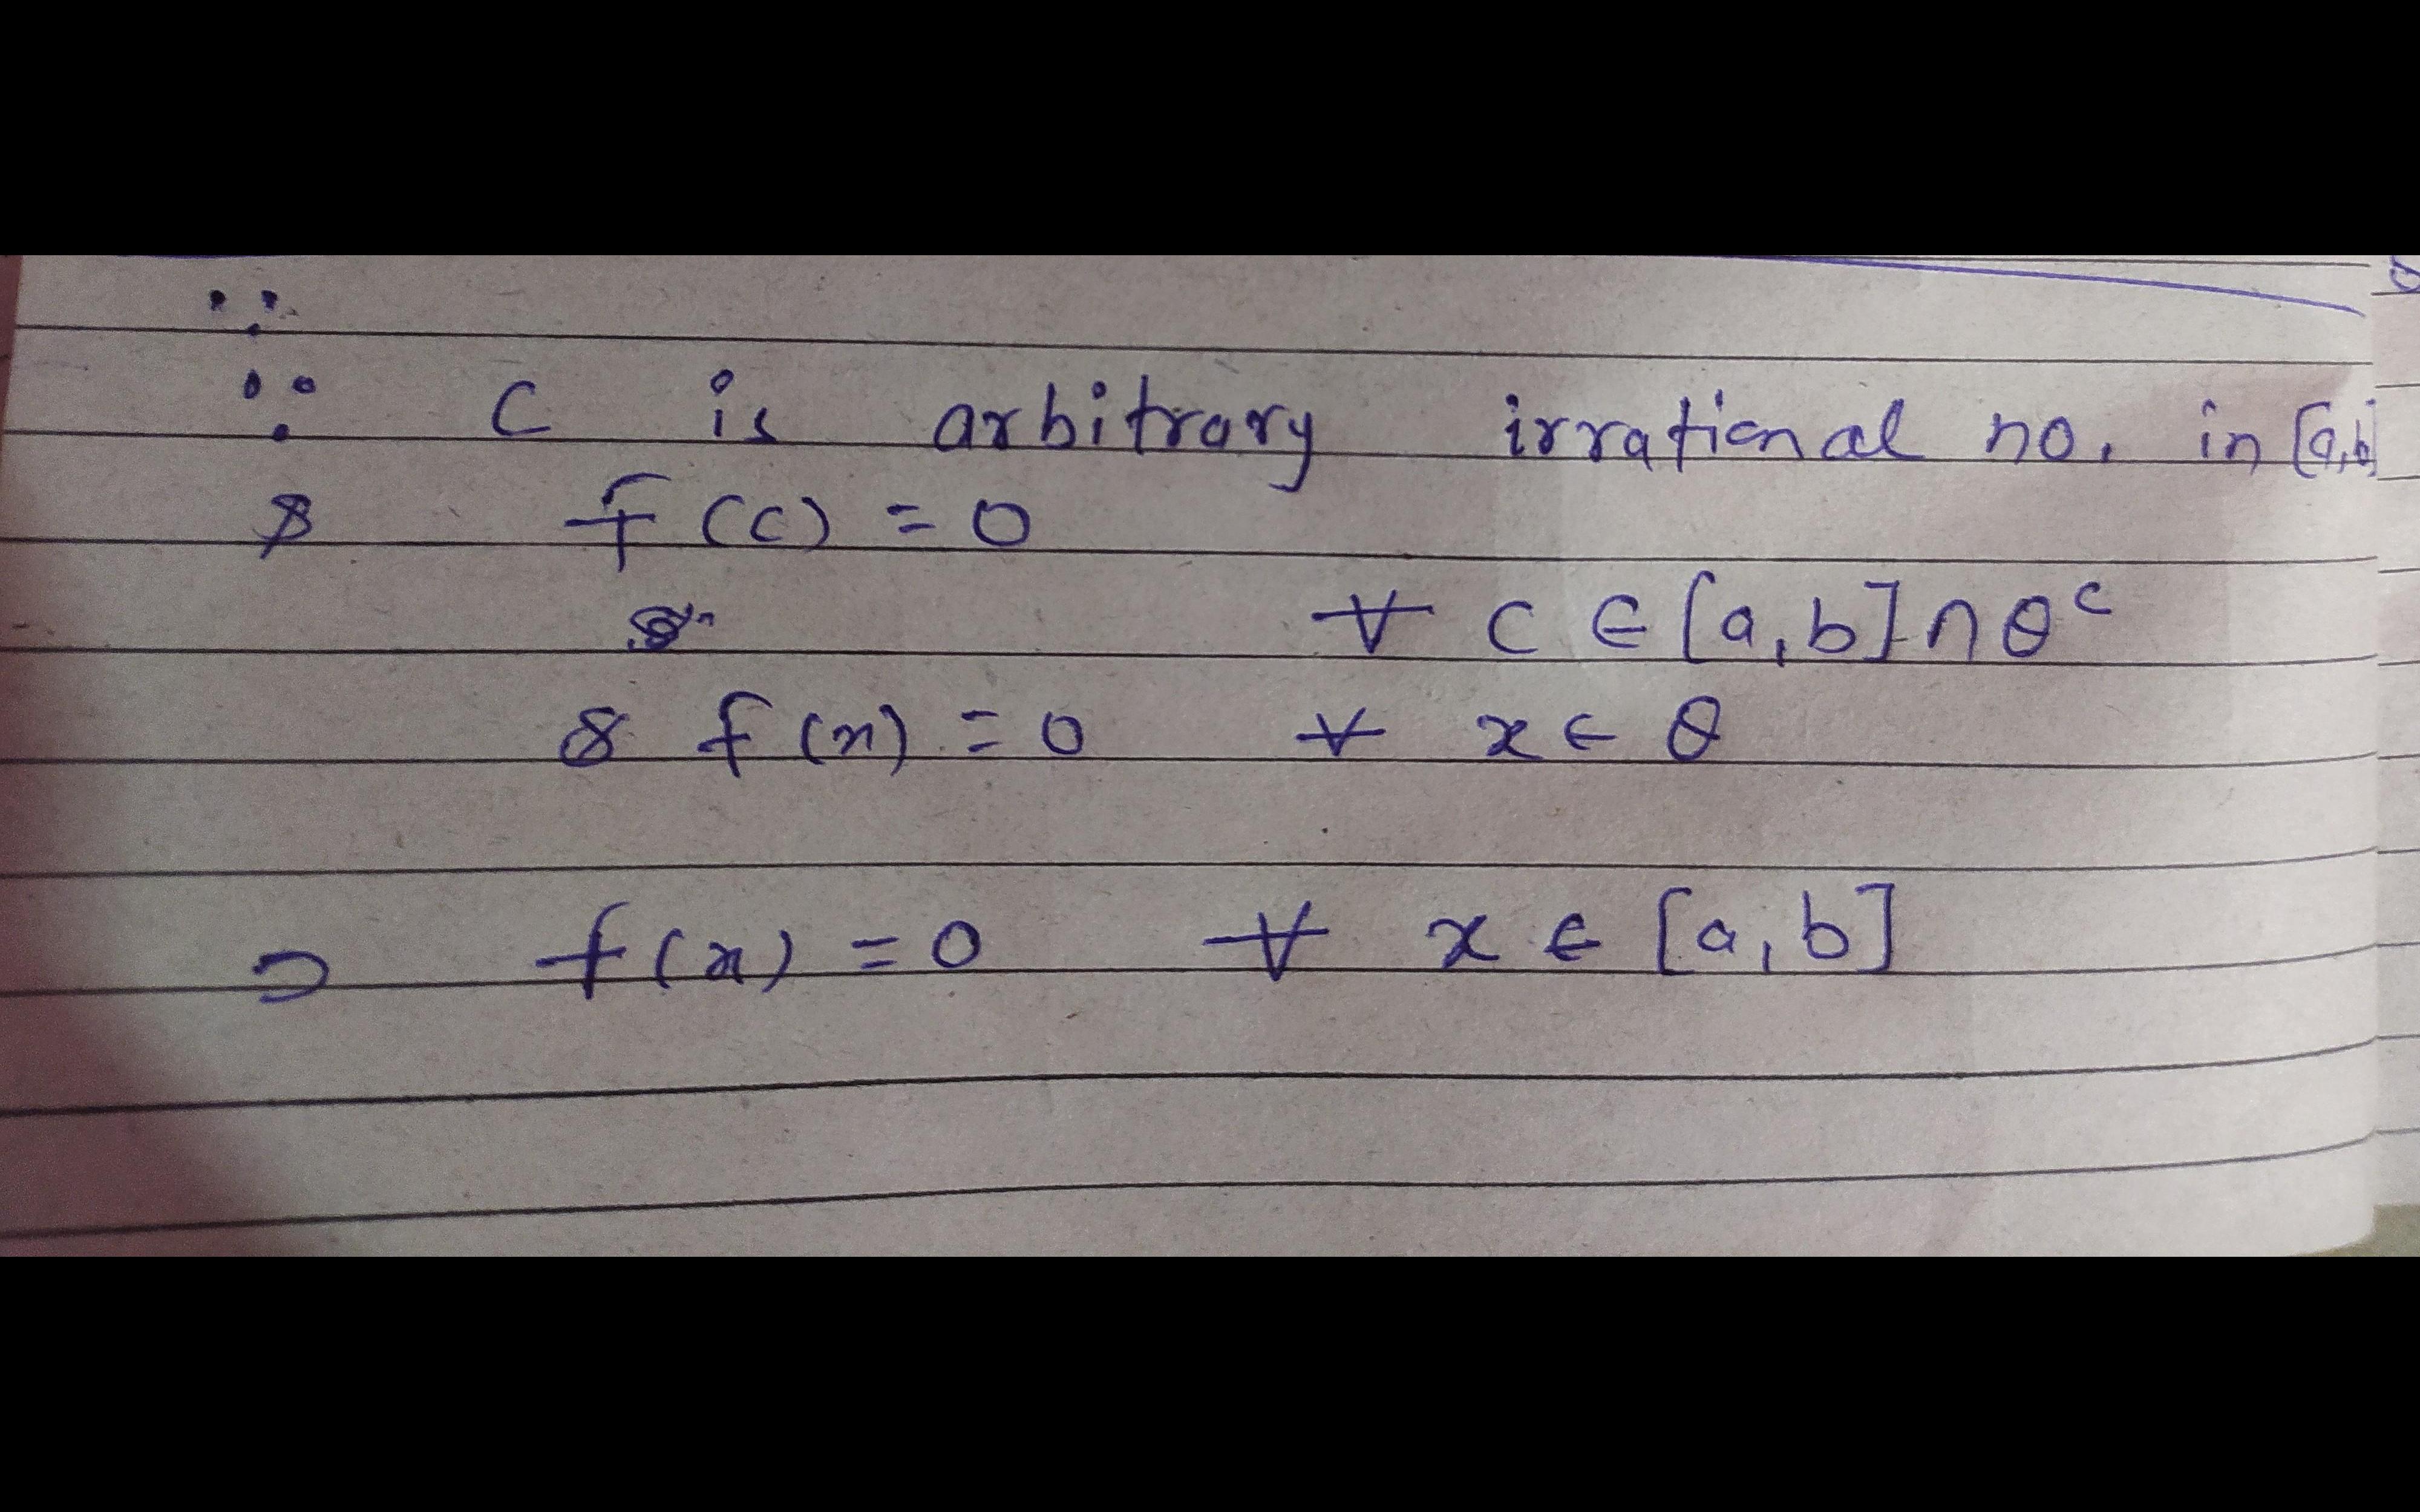 ∵
∵ C is arbitrary irrational no. in [a,b]
& f(c) = 0
∀ C ∈ [a,b] ∩ Q^c
& f(x) = 0 ∀ x ∈ Q
⊃ f(x) = 0 ∀ x ∈ [a,b]